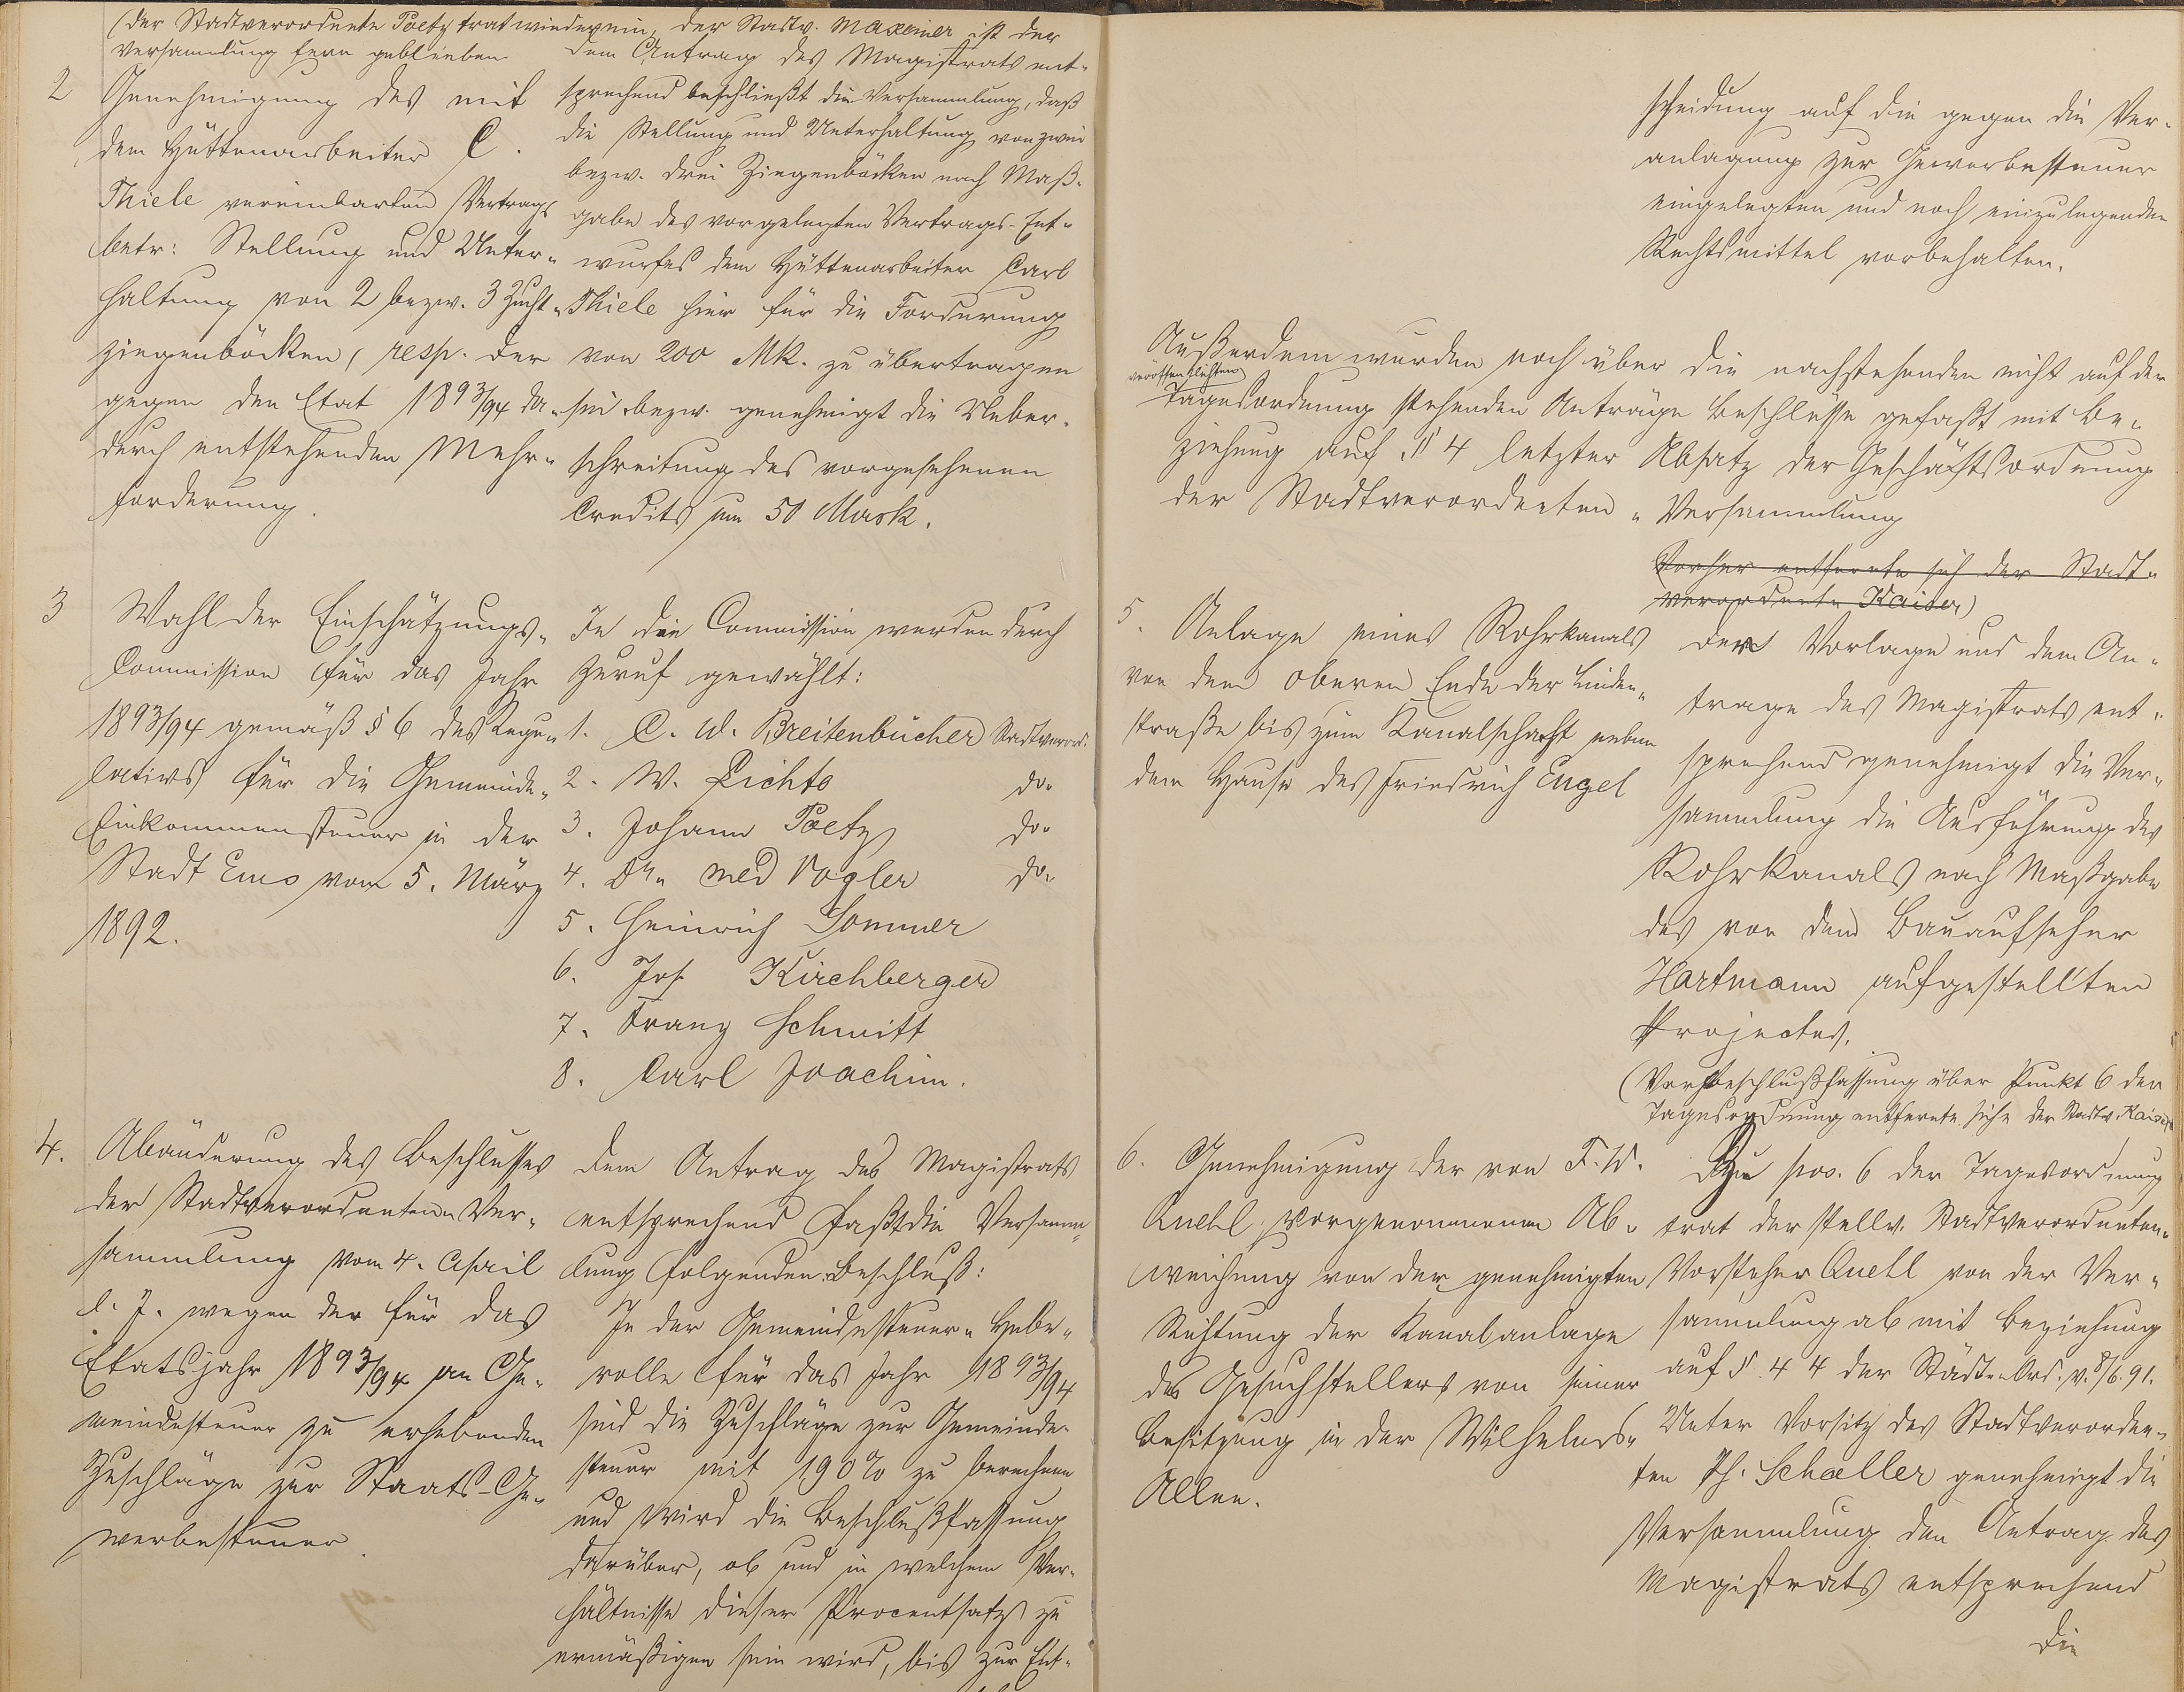 (Der Stadtverordnete Poetz trat wieder ein, der Stadtv. Maxeiner ist der
Versammlung fern geblieben
2
Genehmigung des mit
dem Hüttenarbeiter C.
Thiele vereinbarten Vertrags
betr: Stellung und Unter-
haltung von 2 bezw. 3 Zucht-
ziegenböcken, resp. der
gegen den Etat 1893/94 da-
durch entstehenden Mehr-
forderung.
Dem Antrag des Magistrats ent-
sprechend beschließt die Versammlung, daß
die Stellung und Unterhaltung von zwei
bezw. drei Ziegenböcken nach Maß-
gabe des vorgelegten Vertrags-Ent-
wurfes dem Hüttenarbeiter Carl
Thiele hier für die Forderung
von 200 Mk. zu übertragen
sei bezw. genehmigt die Ueber-
schreitung des vorgesehenen
Credits um 50 Mark.
3
Wahl der Einschätzungs-
Commission für das Jahr
1893/94 gemäß § 6 des Regu-
lativs für die Gemeinde-
Einkommensteuer in der
Stadt Ems vom 5. März
1892.
In die Commission werden durch
Zuruf gewählt:
1. C. W. Breitenbücher Stadtverord.
2. W. Lichto do.
3. Johann Poetz do.
4. Dr. med Vogler do.
5. Heinrich Sommer
6. Jos. Kirchberger
7. Franz Schmitt
8. Carl Joachim.
4.
Abänderung des Beschlusses
der Stadtverordneten-Ver-
sammlung vom 4. April
l. J. wegen der für das
Etatsjahr 1893/94 an Ge-
meindesteuer zu erhebenden
Zuschläge zur Staats-Ge-
werbesteuer.
Dem Antrag des Magistrats
entsprechend faßt die Versamm-
lung folgenden Beschluß:
In der Gemeindesteuer-Hebe-
rolle für das Jahr 1893/94
sind die Zuschläge zur Gemeinde-
steuer mit 190% zu berechnen
und wird die Beschlußfassung
darüber, ob und in welchem Ver-
hältnisse dieser Procentsatz zu
ermäßigen sein wird, bis zur Ent-
scheidung auf die gegen die Ver-
anlagung zur Gewerbesteuer
eingelegten und noch einzulegenden
Rechtsmittel vorbehalten.
Außerdem wurden noch über die nachstehenden nicht auf der
veröffentlichten
Tagesordnung stehenden Anträge Beschlüsse gefaßt mit Be-
ziehung auf § 4 letzter Absatz der Geschäftsordnung
der Stadtverordneten-Versammlung
(Vorher entfernte sich der Stadt-
verordnete Kaiser)
5.
Anlage eines Rohrkanals
von dem oberen Ende der Linden-
straße bis zum Kanalschacht neben
dem Hause des Friedrich Engel
Der Vorlage und dem An-
trage des Magistrats ent-
sprechend genehmigt die Ver-
sammlung die Ausführung des
Rohrkanals nach Maßgabe
des von dem Bauaufseher
Hartmann aufgestellten
Projectes.
(Vor Beschlußfassung über Punkt 6 der
Tagesordnung entfernte sich der Stadtv. Kaiser)
6.
Genehmigung der von F. W.
Quehl vorgenommenen Ab-
weichung von der genehmigten
Richtung der Kanalanlage
des Gesuchstellers von seiner
Besitzung in der Wilhelms-
Allee.
Zu pos. 6 der Tagesordnung
trat der stellv. Stadtverordneten-
Vorsteher Quehl von der Ver-
sammlung ab mit Beziehung
auf § 44 der Städte-Ord. v. 8/6.91.
Unter Vorsitz des Stadtverordne-
ten Ph. Schoeller genehmigt die
Versammlung den Antrag des
Magistrats entsprechend
die